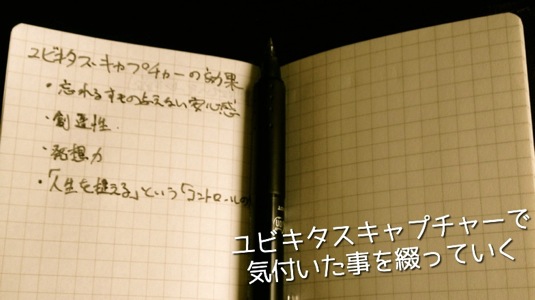 ユビキタス・キャプチャーの効果
・忘れるもの与えない安心感
・創造性
・発想力
・「人生を控える」という「コントロールの
ユビキタスキャプチャーで
気付いた事を綴っていく